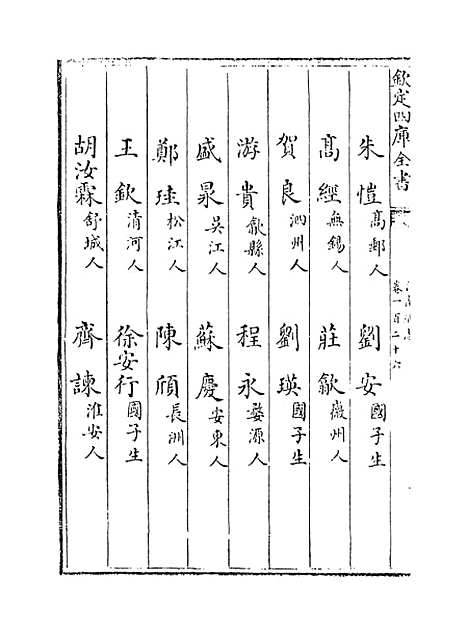 欽定四庫全書
卷一百二十六
朱愷高郵人 劉安國子生
高經無錫人 莊歙徽州人
賀良泗州人 劉瑛國子生
游貴歙縣人 程永婺源人
盛㫤吳江人 蘇慶安東人
鄭珪松江人 陳頎長洲人
王欽清河人 徐安行國子生
胡汝霖舒城人 齊諫淮安人